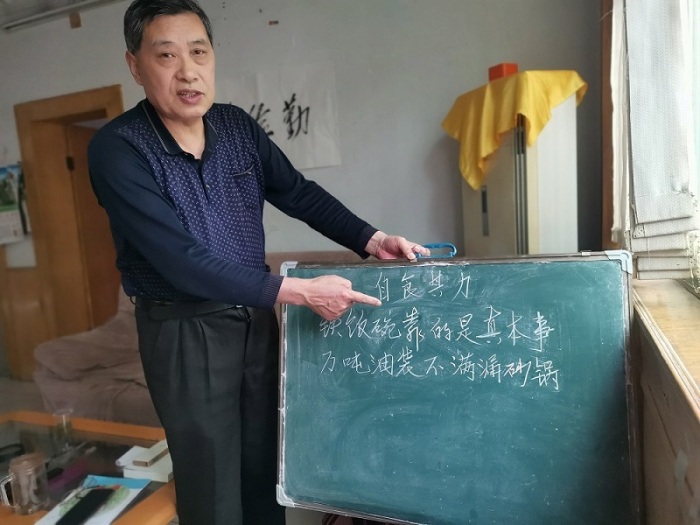 勤
自食其力
铁饭碗靠的是真本事
万吨油装不满漏砂锅